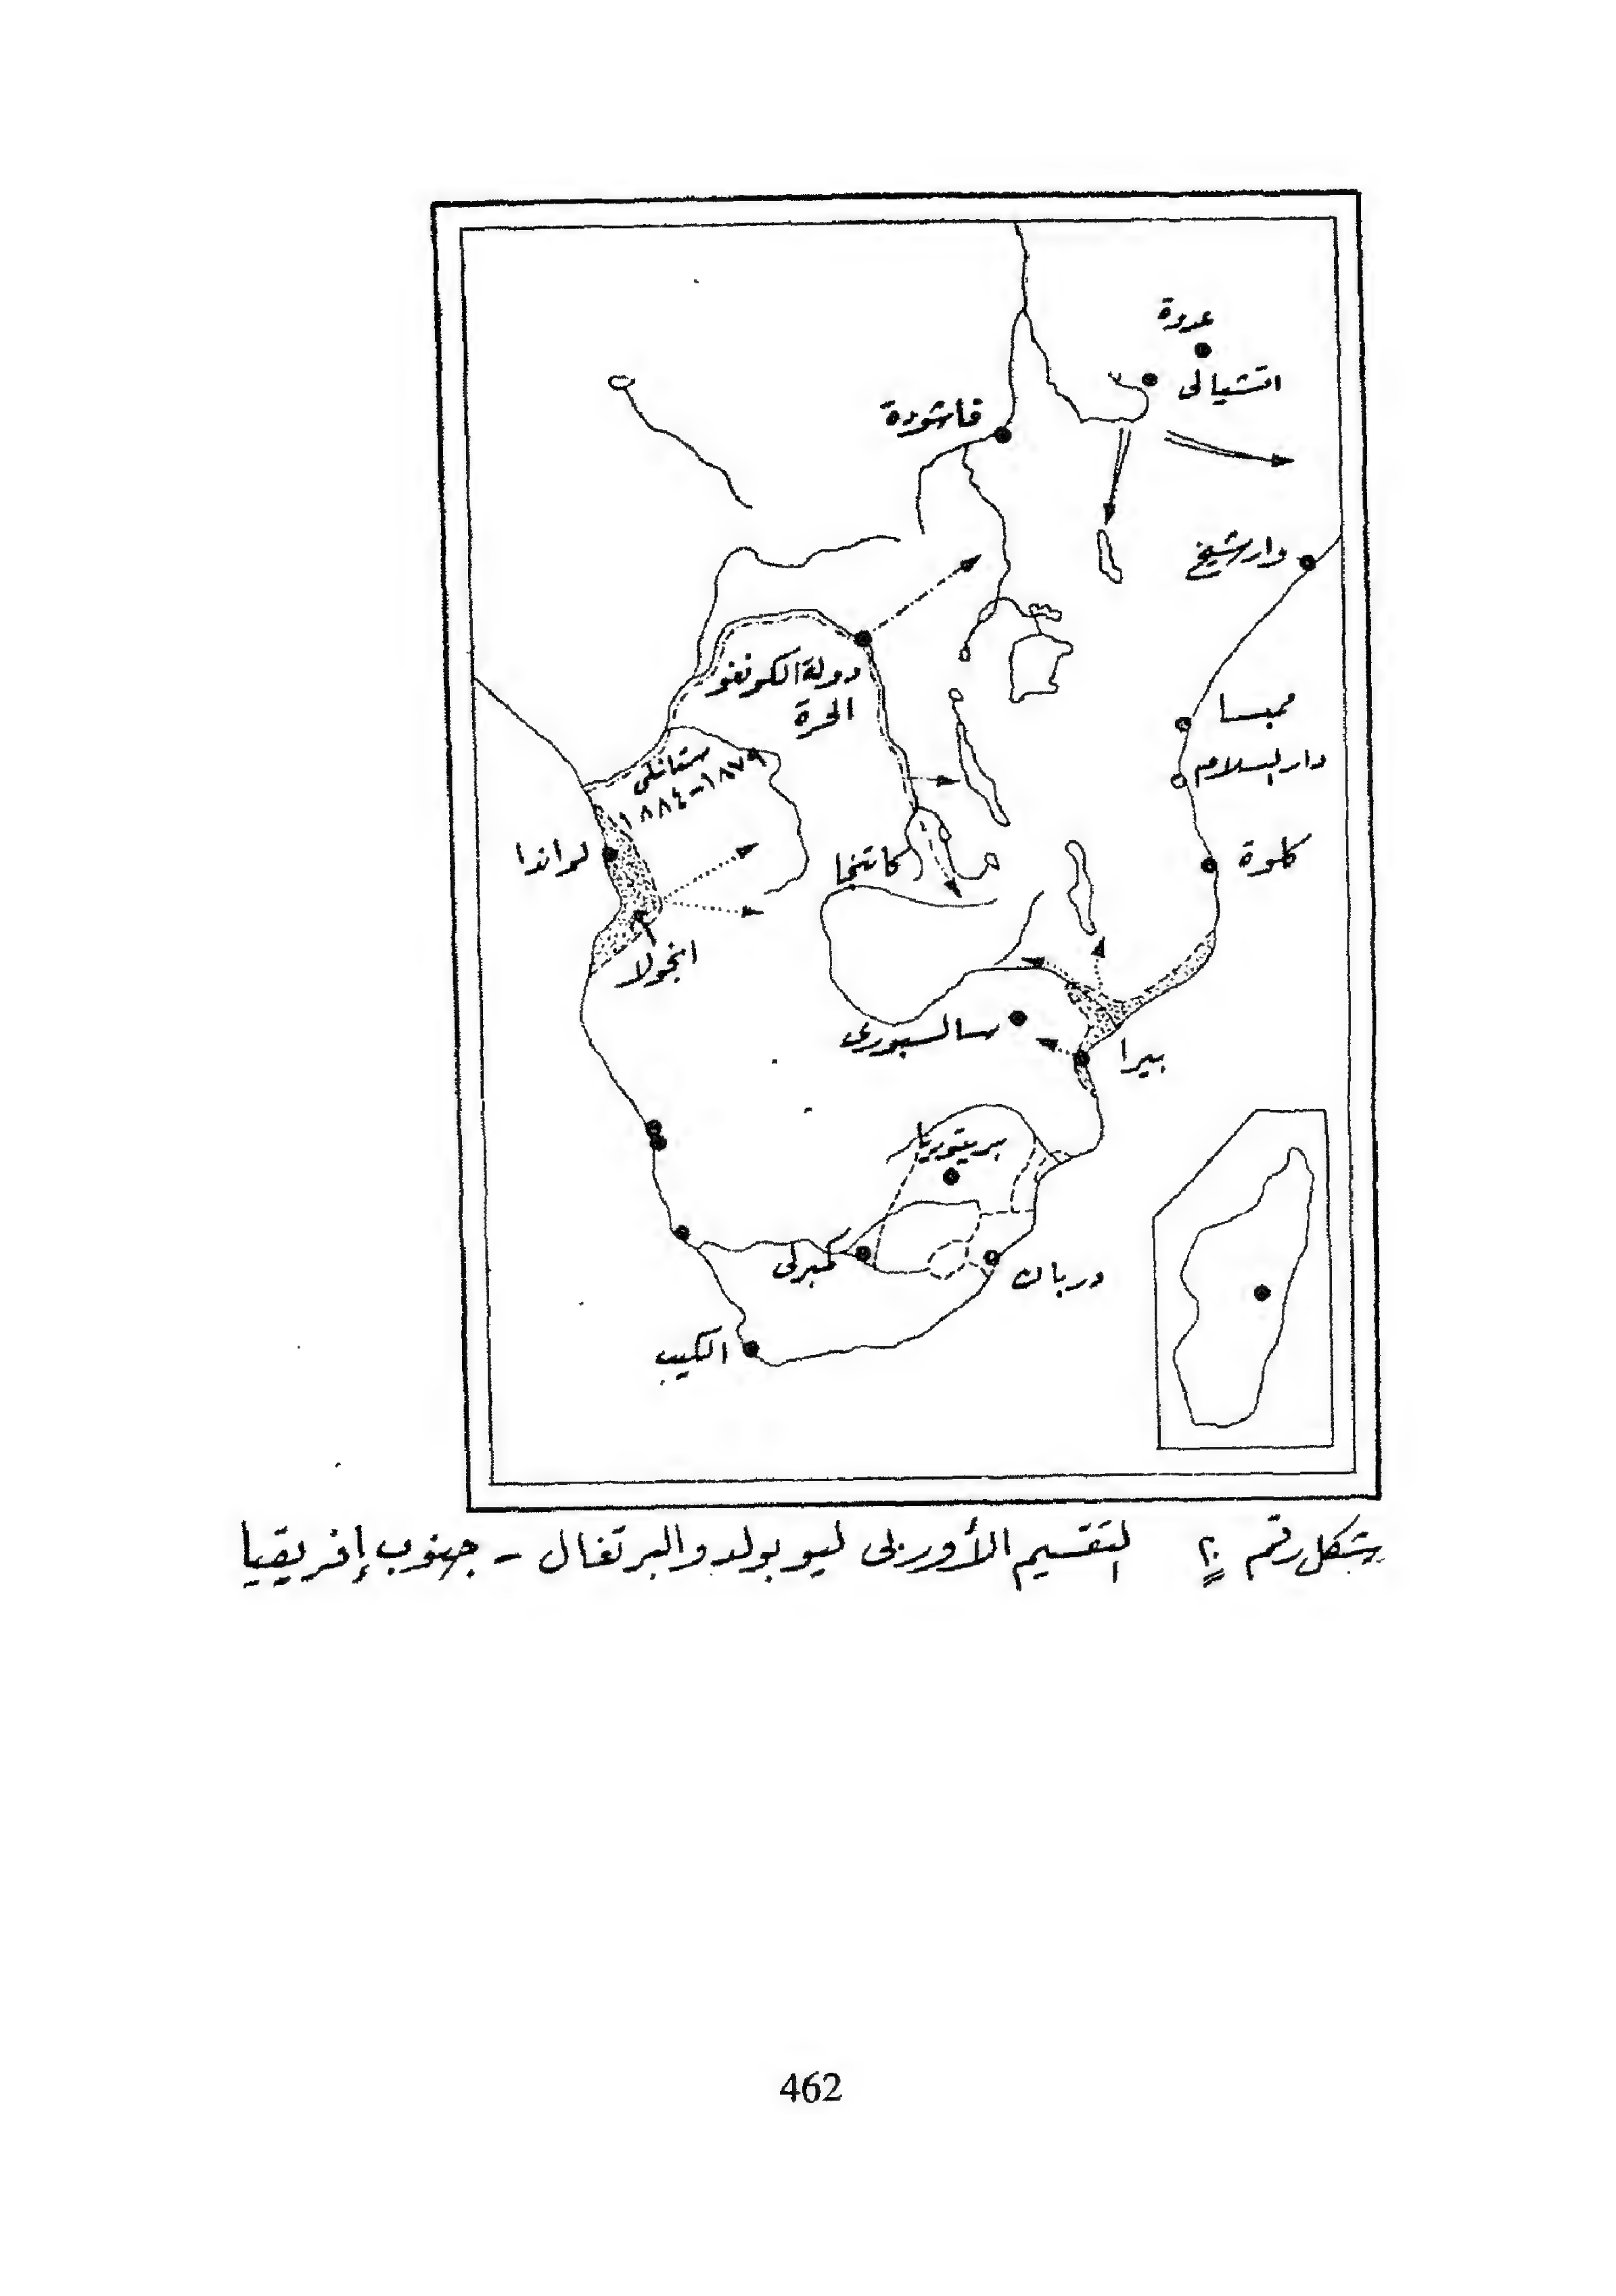 عدوة
انتشيالى
فاشودة
دار شيخ
دولة الكونغو
الحرة
ممبسا
ستانلى
١٨٧٩-١٨٨٤
دار السلام
لواندا
كاتنجا
كلوة
انجولا
سالسبورى
بيرا
بريتوريا
كمبرلى
دربان
الكيب
شكل رقم التقسيم الأوربى ليوبولد والبرتغال - جنوب إفريقيا
462